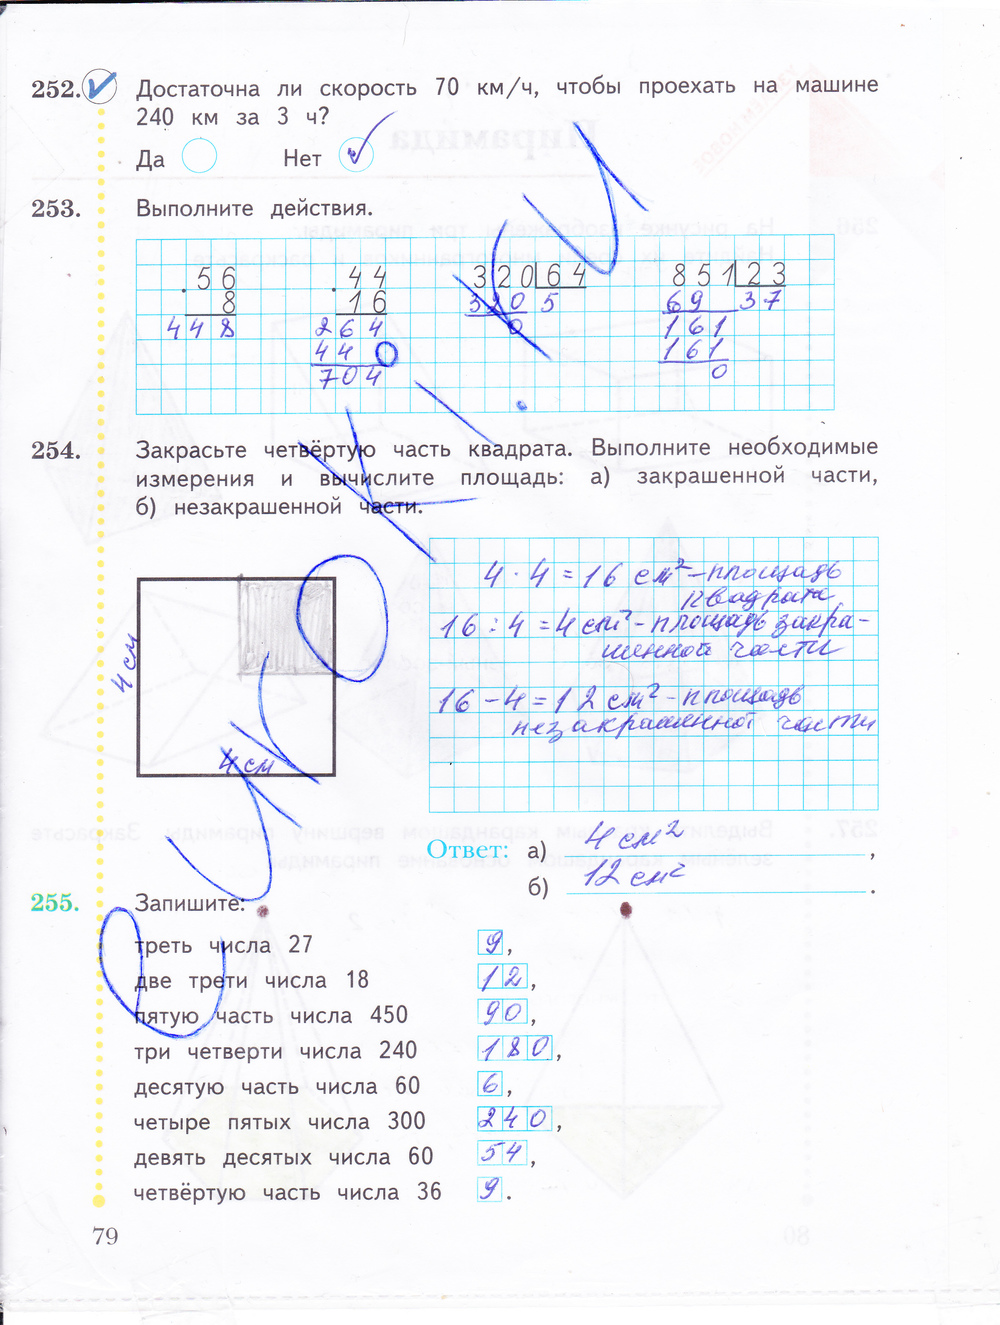 252. Достаточна ли скорость 70 км/ч, чтобы проехать на машине
240 км за 3 ч?
Да Нет
253. Выполните действия.
56 44 320 64 851 23
8 16 320 5 69 37
448 264 0 161
440 161
704 0
254. Закрасьте четвёртую часть квадрата. Выполните необходимые
измерения и вычислите площадь: а) закрашенной части,
б) незакрашенной части.
4 · 4 = 16 см² - площадь
квадрата
16 : 4 = 4 см² - площадь закра-
шенной части
4 см
16 - 4 = 12 см² - площадь
незакрашенной части
4 см
Ответ: а) 4 см² ,
б) 12 см² .
255. Запишите:
треть числа 27 9,
две трети числа 18 12,
пятую часть числа 450 90,
три четверти числа 240 180,
десятую часть числа 60 6,
четыре пятых числа 300 240,
девять десятых числа 60 54,
четвёртую часть числа 36 9.
79
еуроки.си